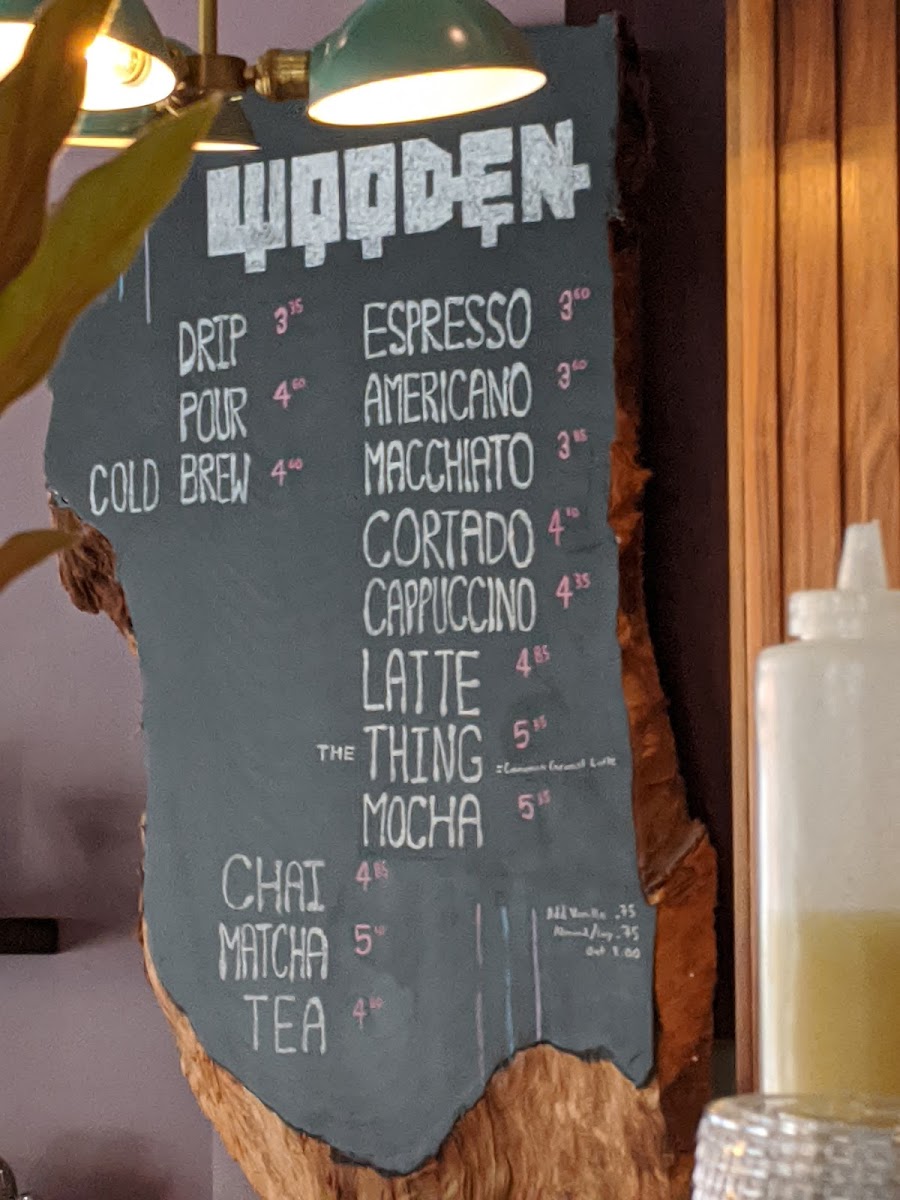 WOODEN
DRIP 3 35
POUR 4 60
COLD BREW 4 60
ESPRESSO 3 60
AMERICANO 3 60
MACCHIATO 3 85
CORTADO 4
CAPPUCCINO 4 35
LATTE 4 85
THE THING 5
MOCHA 5
CHAI 4 85
MATCHA 5
TEA 4
Add Vanilla .75
.75
Oat 1.00